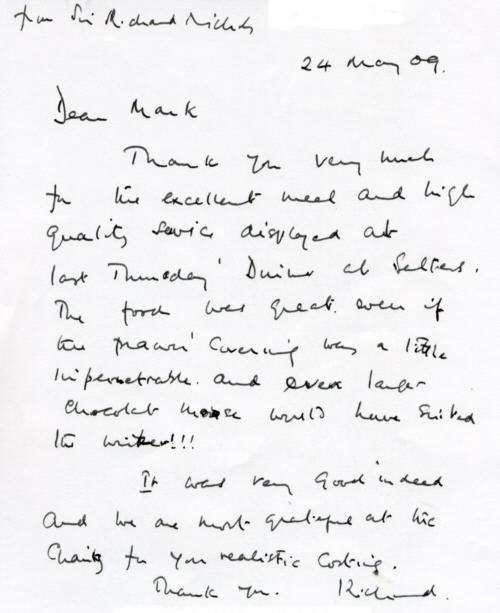 from Sir Richard Nichols
24 May 09.
Dear Mark
Thank you very much
for the excellent meal and high
quality service displayed at
last Thursday' Dinner at Salters.
The food was great. even if
the prawn' Covering was a little
impenetrable. and even larger
Chocolate mousse would have suited
the writer!!!
It was very Good indeed
and we are most grateful at the
Charity for your realistic Costing.
Thank you. Richard.